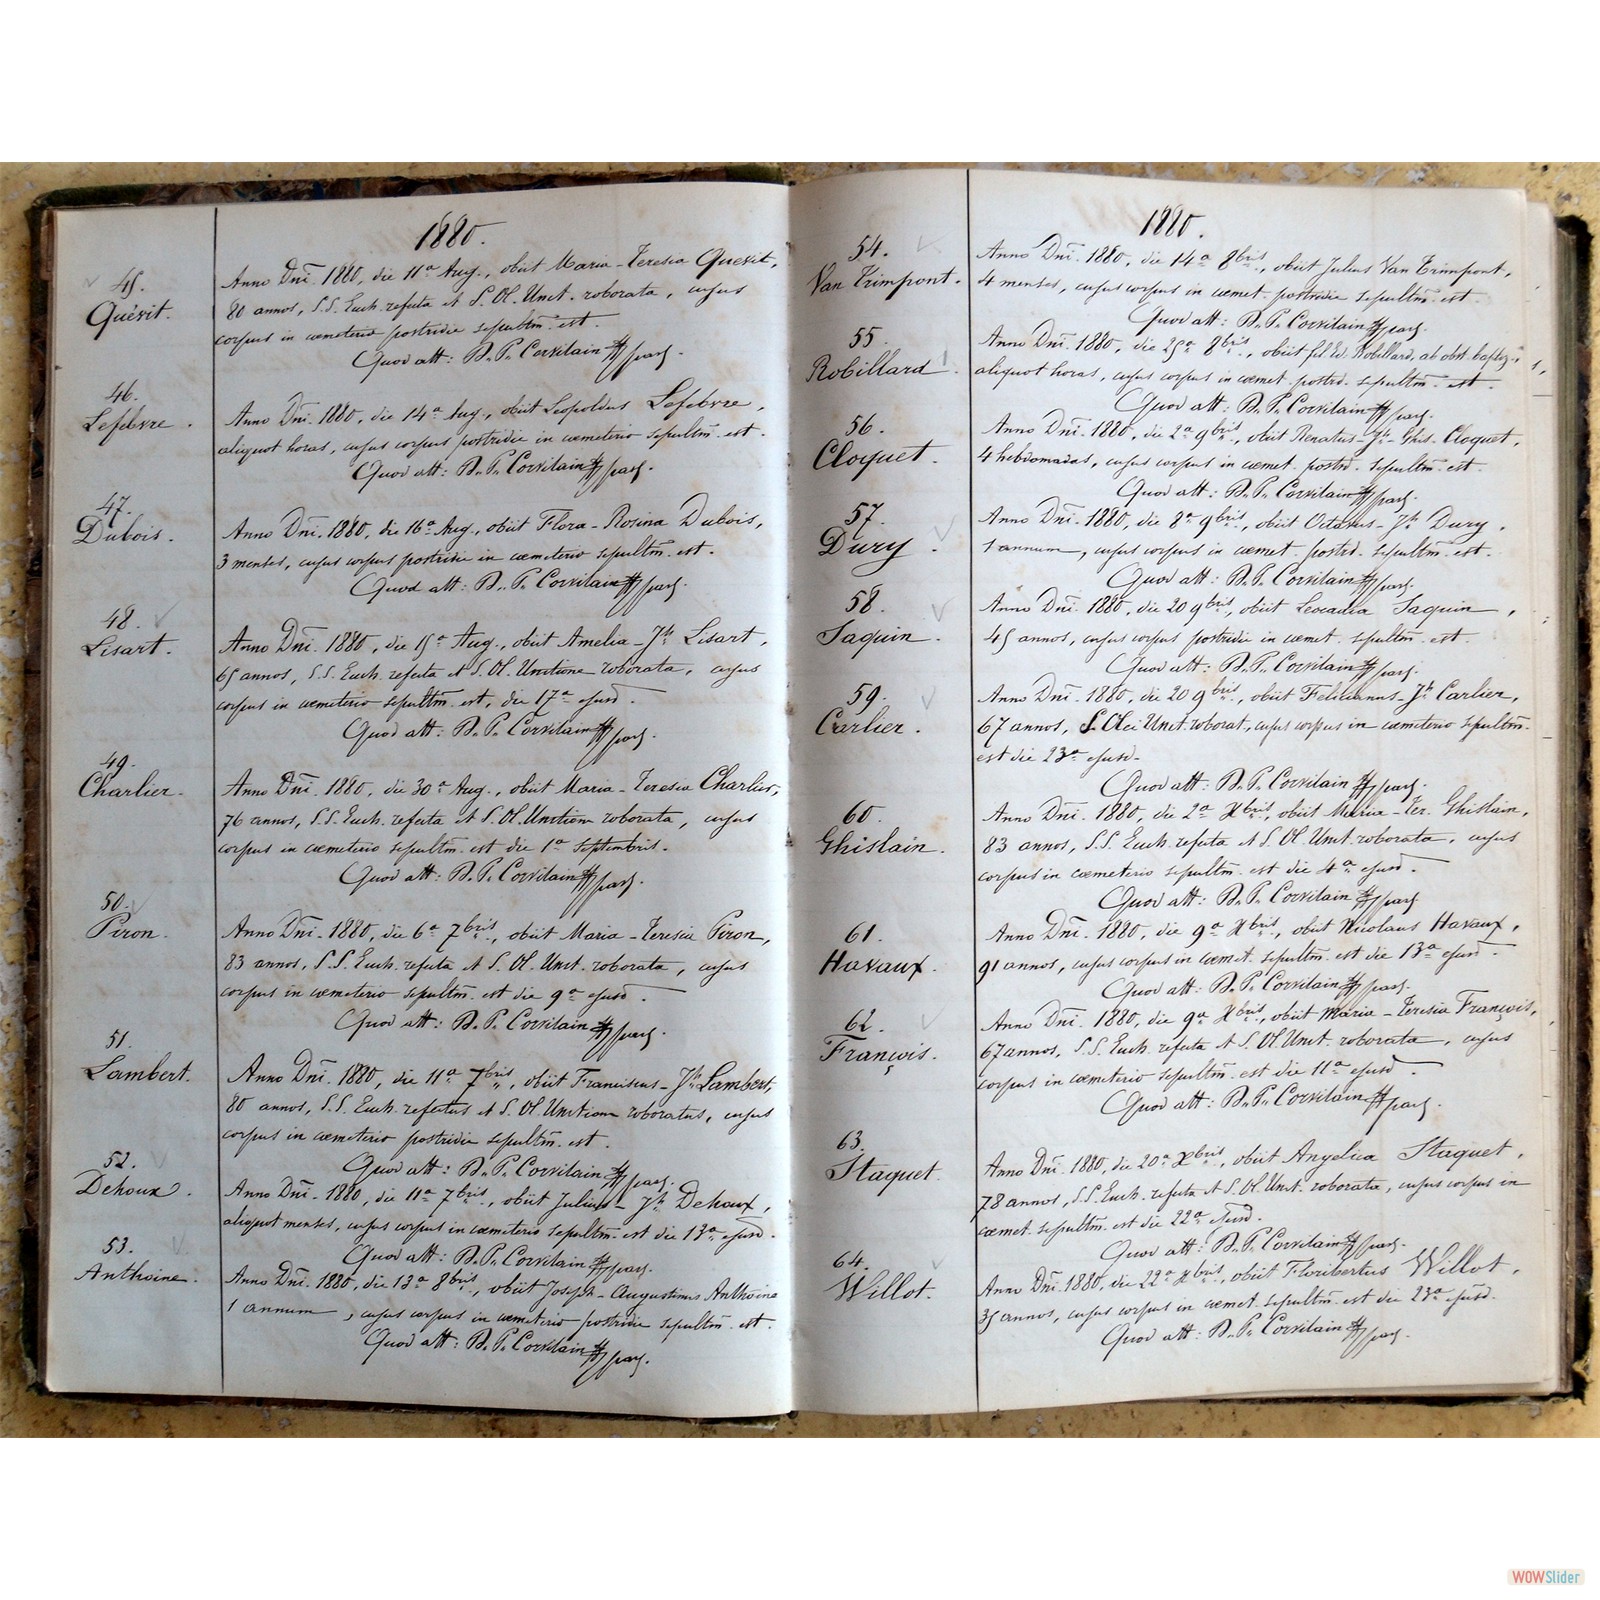 1880.
45.
Quévit.
Anno Dnī. 1880, die 11a Aug., obiit Maria-Teresia Quevit,
80 annos, S.S. Euch. refecta et S. Ol. Unct. roborata, cujus
corpus in cœmeterio postridie sepultm̄. est.
Quod att: B. P. Corvilain par.
46.
Lefebvre.
Anno Dnī. 1880, die 14a Aug., obiit Leopoldus Lefebvre,
aliquot horas, cujus corpus postridie in cœmeterio sepultm̄. est.
Quod att: B. P. Corvilain par.
47.
Dubois.
Anno Dnī. 1880, die 16a Aug., obiit Flora-Rosina Dubois,
3 menses, cujus corpus postridie in cœmeterio sepultm̄. est.
Quod att: B. P. Corvilain par.
48.
Lisart.
Anno Dnī. 1880, die 15a Aug., obiit Amelia-Jh Lisart,
65 annos, S.S. Euch. refecta et S. Ol. Unctione roborata, cujus
corpus in cœmeterio sepultm̄. est, die 17a ejusd.
Quod att: B. P. Corvilain par.
49.
Charlier.
Anno Dnī. 1880, die 30a Aug., obiit Maria-Teresia Charlier,
76 annos, S.S. Euch. refecta et S. Ol. Unctiom roborata, cujus
corpus in cœmeterio sepultm̄. est die 1a Septembris.
Quod att: B. P. Corvilain par.
50.
Piron.
Anno Dnī. 1880, die 6a 7bris, obiit Maria-Teresia Piron,
83 annos, S.S. Euch. refecta et S. Ol. Unct. roborata, cujus
corpus in cœmeterio sepultm̄. est die 9a ejusd.
Quod att: B. P. Corvilain par.
51.
Lambert.
Anno Dnī. 1880, die 11a 7bris, obiit Franciscus-Jh Lambert,
80 annos, S.S. Euch. refectus et S. Ol. Unctiom roboratus, cujus
corpus in cœmeterio postridie sepultm̄. est.
Quod att: B. P. Corvilain par.
52.
Dehoux.
Anno Dnī. 1880, die 11a 7bris, obiit Julius-Jh Dehoux,
aliquot menses, cujus corpus in cœmeterio sepultm̄. est die 13a ejusd.
Quod att: B. P. Corvilain par.
53.
Anthoine.
Anno Dnī. 1880, die 13a 8bris, obiit Joseph-Augustinus Anthoine
1 annum, cujus corpus in cœmeterio postridie sepultm̄. est.
Quod att: B. P. Corvilain par.
1880.
54.
Van Trimpont.
Anno Dnī. 1880, die 14a 8bris, obiit Julius Van Trimpont,
4 menses, cujus corpus in cœmet. postridie sepultm̄. est.
Quod att: B. P. Corvilain par.
55
Robillard
Anno Dnī. 1880, die 25a 8bris, obiit fil. Ed. Robillard, ab obst. baptiz.
aliquot horas, cujus corpus in cœmet. postrd. sepultm̄. est.
Quod att: B. P. Corvilain par.
56.
Cloquet.
Anno Dnī. 1880, die 2a 9bris, obiit Renatus-Jh-Ghis. Cloquet,
4 hebdomadas, cujus corpus in cœmet. postrd. sepultm̄. est.
Quod att: B. P. Corvilain par.
57.
Dury.
Anno Dnī. 1880, die 8a 9bris, obiit Octavus-Jh Dury,
1 annum, cujus corpus in cœmet. postrd. sepultm̄. est.
Quod att: B. P. Corvilain par.
58.
Jaquin.
Anno Dnī. 1880, die 20 9bris, obiit Leocadia Jaquin,
45 annos, cujus corpus postridie in cœmet. sepultm̄. est.
Quod att: B. P. Corvilain par.
59.
Carlier.
Anno Dnī. 1880, die 20 9bris, obiit Felicianus-Jh Carlier,
67 annos, S. Olei Unct. roborat., cujus corpus in cœmeterio sepultm̄.
est die 23a ejusd.
Quod att: B. P. Corvilain par.
60.
Ghislain.
Anno Dnī. 1880, die 2a Xbris, obiit Maria-Ter. Ghislain,
83 annos, S.S. Euch. refecta et S. Ol. Unct. roborata, cujus
corpus in cœmeterio sepultm̄. est die 4a ejusd.
Quod att: B. P. Corvilain par.
61.
Havaux.
Anno Dnī. 1880, die 9a Xbris, obiit Nicolaus Havaux,
91 annos, cujus corpus in cœmet. sepultm̄. est die 13a ejusd.
Quod att: B. P. Corvilain par.
62.
François.
Anno Dnī. 1880, die 9a Xbris, obiit Maria-Teresia François,
67 annos, S.S. Euch. refecta et S. Ol. Unct. roborata, cujus
corpus in cœmeterio sepultm̄. est die 11a ejusd.
Quod att: B. P. Corvilain par.
63.
Staquet.
Anno Dnī. 1880, die 20a Xbris, obiit Angelica Staquet,
78 annos, S.S. Euch. refecta et S. Ol. Unct. roborata, cujus corpus in
cœmet. sepultm̄. est die 22a ejusd.
Quod att: B. P. Corvilain par.
64.
Willot.
Anno Dnī. 1880, die 22a Xbris, obiit Floribertus Willot,
35 annos, cujus corpus in cœmet. sepultm̄. est die 23a ejusd.
Quod att: B. P. Corvilain par.
WOWSlider